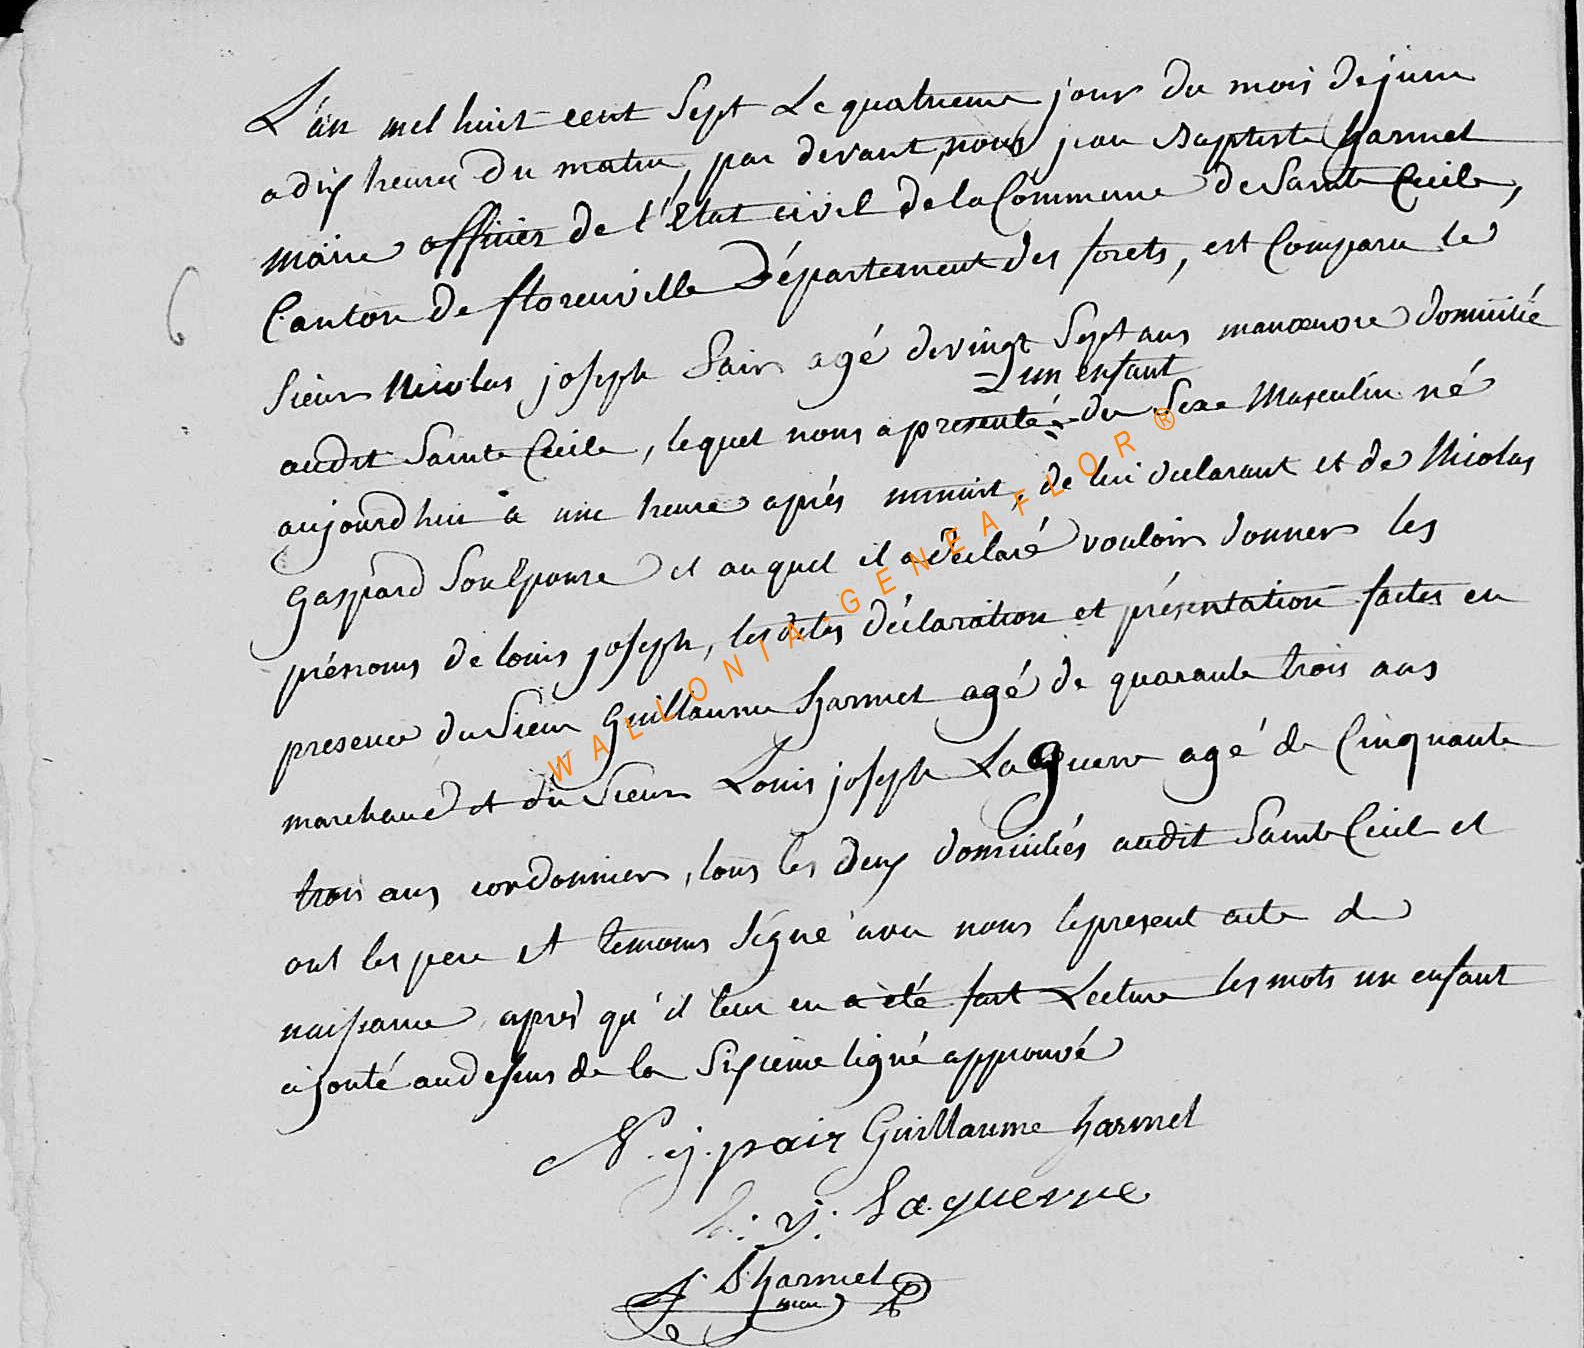 L'an mil huit cent Sept Le quatrieme jour du mois de juin
a dix heures Du matin, par devant, nous jean Baptiste harmel
maire officier de l'État civil de la Commune de Sainte Cecile,
Canton De florenville Département des forets, est Comparu le
6
Sieur Nicolas joseph Pair agé de vingt Sept ans manœuvre domicilié
un enfant
audit Sainte Cecile, lequel nous a presenté du Sexe Masculin né
aujourdhui à une heure aprés minuit, de lui declarant et de Nicolas
Gaspard Son Epouse et auquel il a déclaré vouloir donner les
prénoms de louis joseph, les dites déclaration et présentation faites en
presence du Sieur Guillaume harmel agé de quarante trois ans
marchand et du Sieur Louis joseph Laguerre agé de Cinquante
trois ans cordonnier, tous les deux domiciliés audit Sainte Cecile et
ont les pere et temoins Signé avec nous le present acte de
naissance, aprés qu'il leur en a été fait Lecture les mots un enfant
ajouté au dessus de la Sixieme ligne approuvé
N. j. pair Guillaume harmel
L. j. Laguerre
J. B. harmel
maire
WALLONIA-GENEAFLOR®